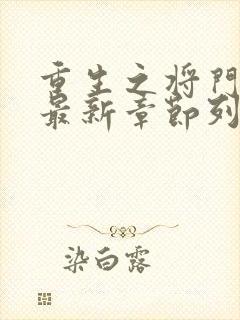 重生之将门
最新章节列
染白露